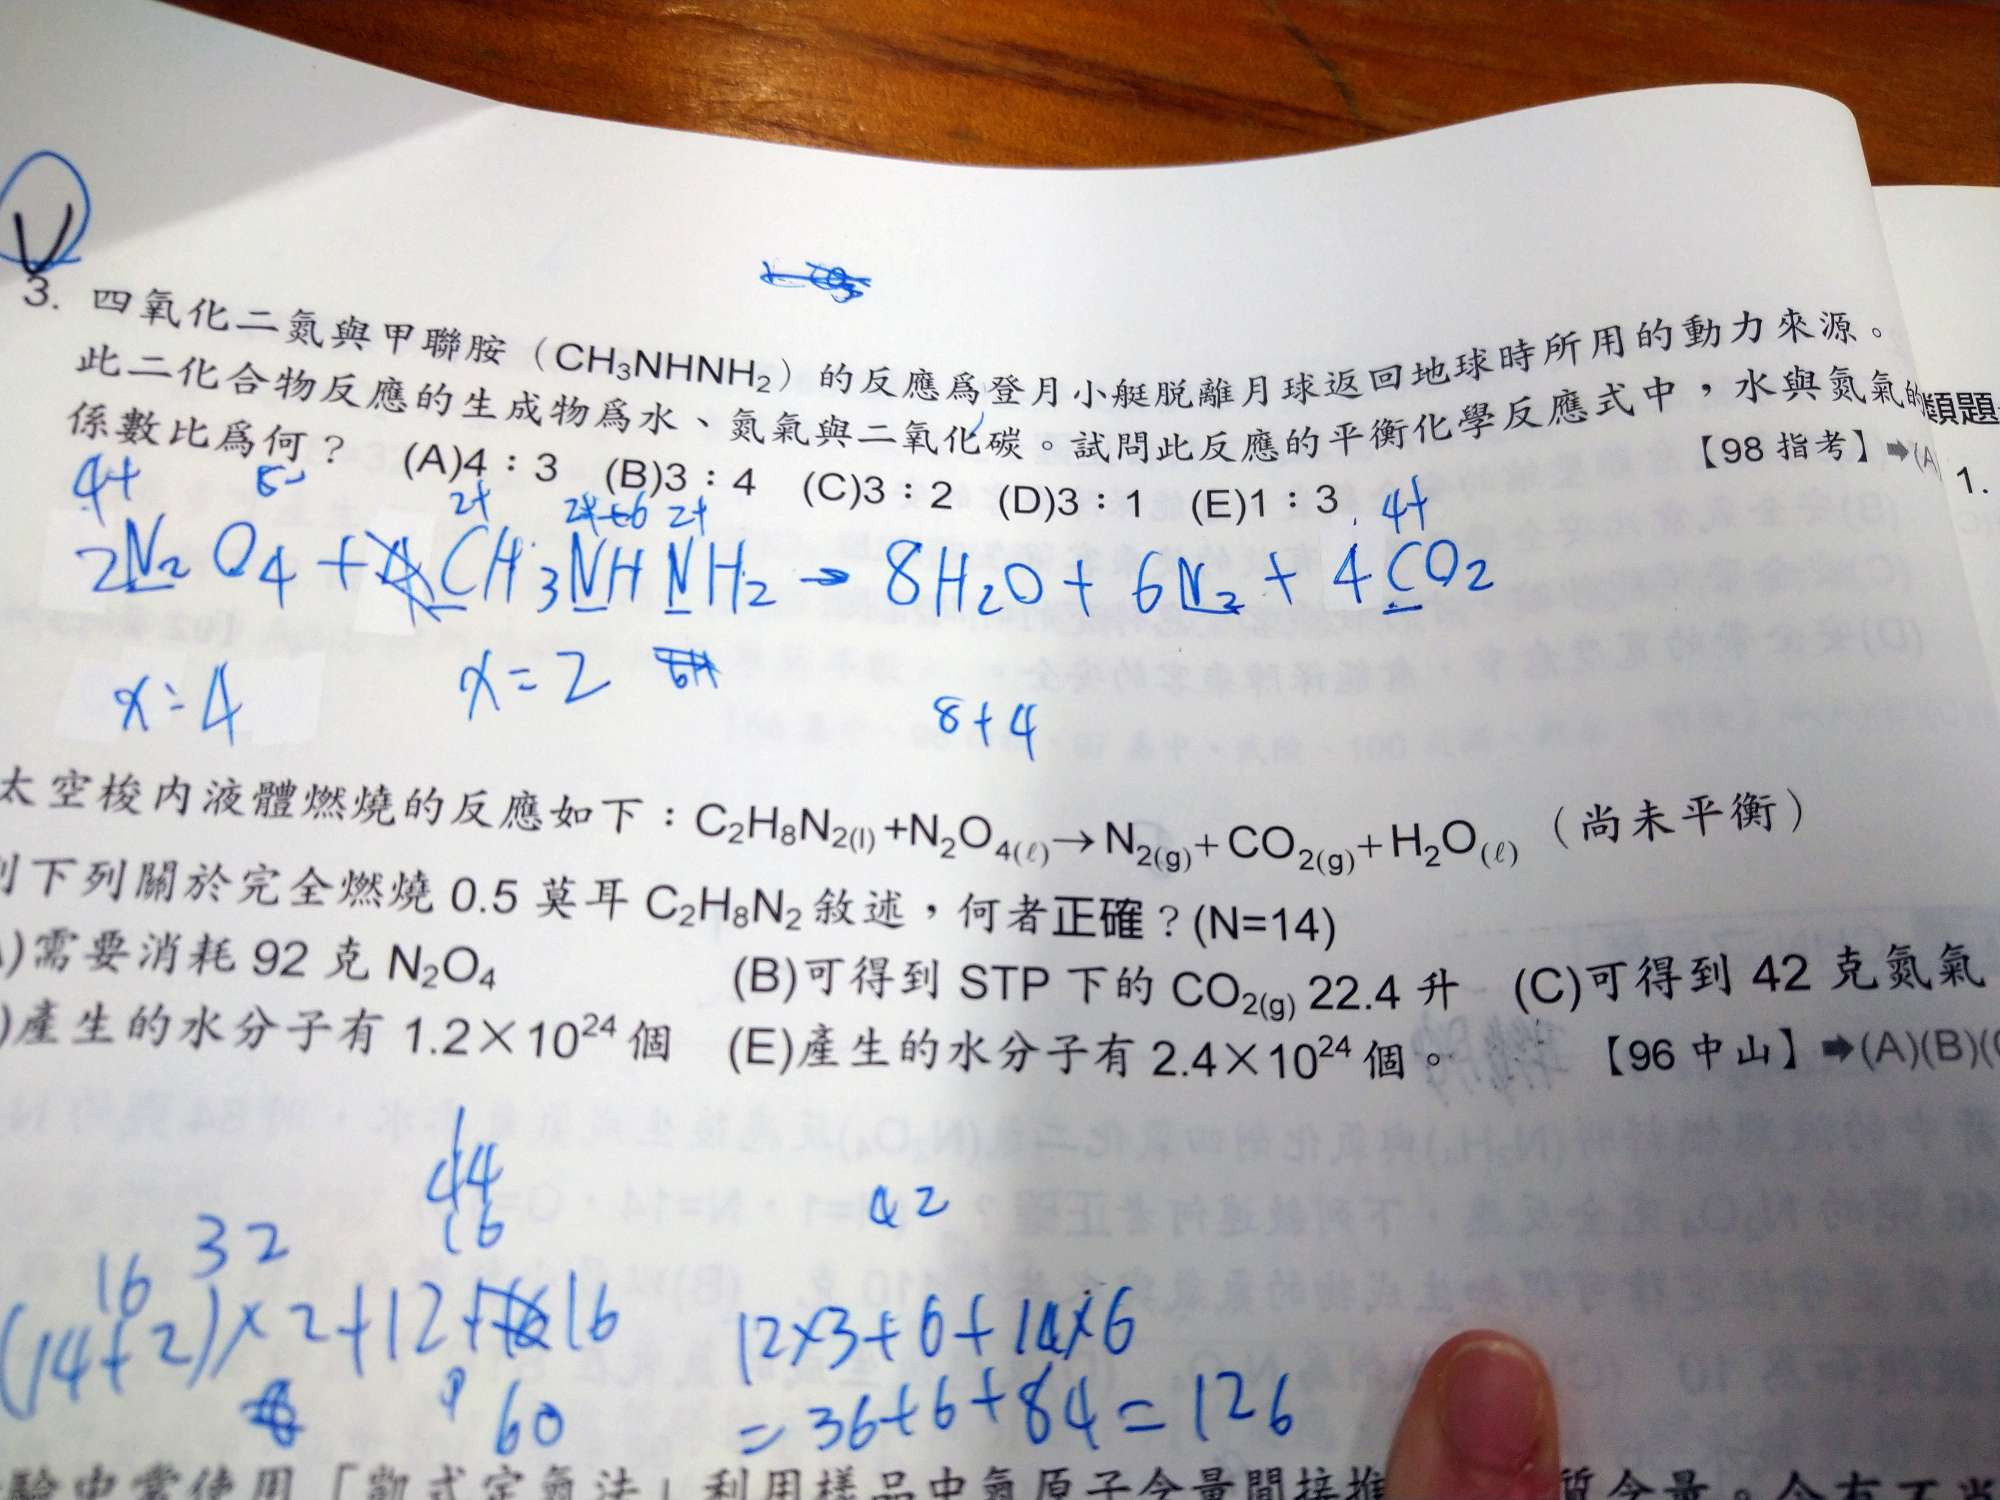 3. 四氧化二氮與甲聯胺（CH₃NHNH₂）的反應為登月小艇脫離月球返回地球時所用的動力來源。
此二化合物反應的生成物為水、氮氣與二氧化碳。試問此反應的平衡化學反應式中，水與氮氣的
係數比為何？ (A)4：3 (B)3：4 (C)3：2 (D)3：1 (E)1：3 【98 指考】➡(A
類題
1.
4+ 2+ 2+ 4+
2N₂O₄ + 4CH₃NHNH₂ → 8H₂O + 6N₂ + 4CO₂
x=4 x=2
8+4
太空梭內液體燃燒的反應如下：C₂H₈N₂(l)+N₂O₄(ℓ)→N₂(g)+CO₂(g)+H₂O(ℓ)（尚未平衡）
下列關於完全燃燒 0.5 莫耳 C₂H₈N₂ 敘述，何者正確？(N=14)
)需要消耗 92 克 N₂O₄ (B)可得到 STP 下的 CO₂(g) 22.4 升 (C)可得到 42 克氮氣
)產生的水分子有 1.2×10²⁴ 個 (E)產生的水分子有 2.4×10²⁴ 個。 【96 中山】➡(A)(B)(
44
16
42
16 32
(14+2)×2+12+16
60
12×3+6+14×6
=36+6+84=126
驗中常使用「凱式定氮法」利用樣品中氮原子含量間接推
質含量。今有不